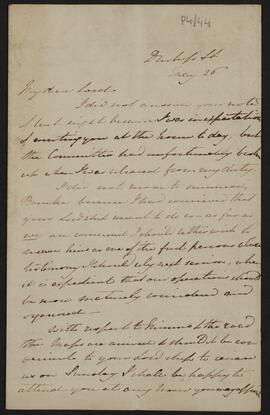 P4/44
Duchess St.
My dear Lord
I did not answer your note
last night because I was in expectation
of meeting you at the House to day, but
the Committee had unfortunately broke
up when I was released from my duty.
I did not move to summon
because I had conceived that
your Lordship meant to do so as far as
we are concerned I should rather wish to
him as one of the first persons whose
testimony I should rely next session, when
it is expedient that our operations should
be more maturely considered and
organized —
With respect to the road
the Maps are arrived & should it be con
venient to your Lordship to receive
us on Sunday I shall be happy to
attend you at any hour you may